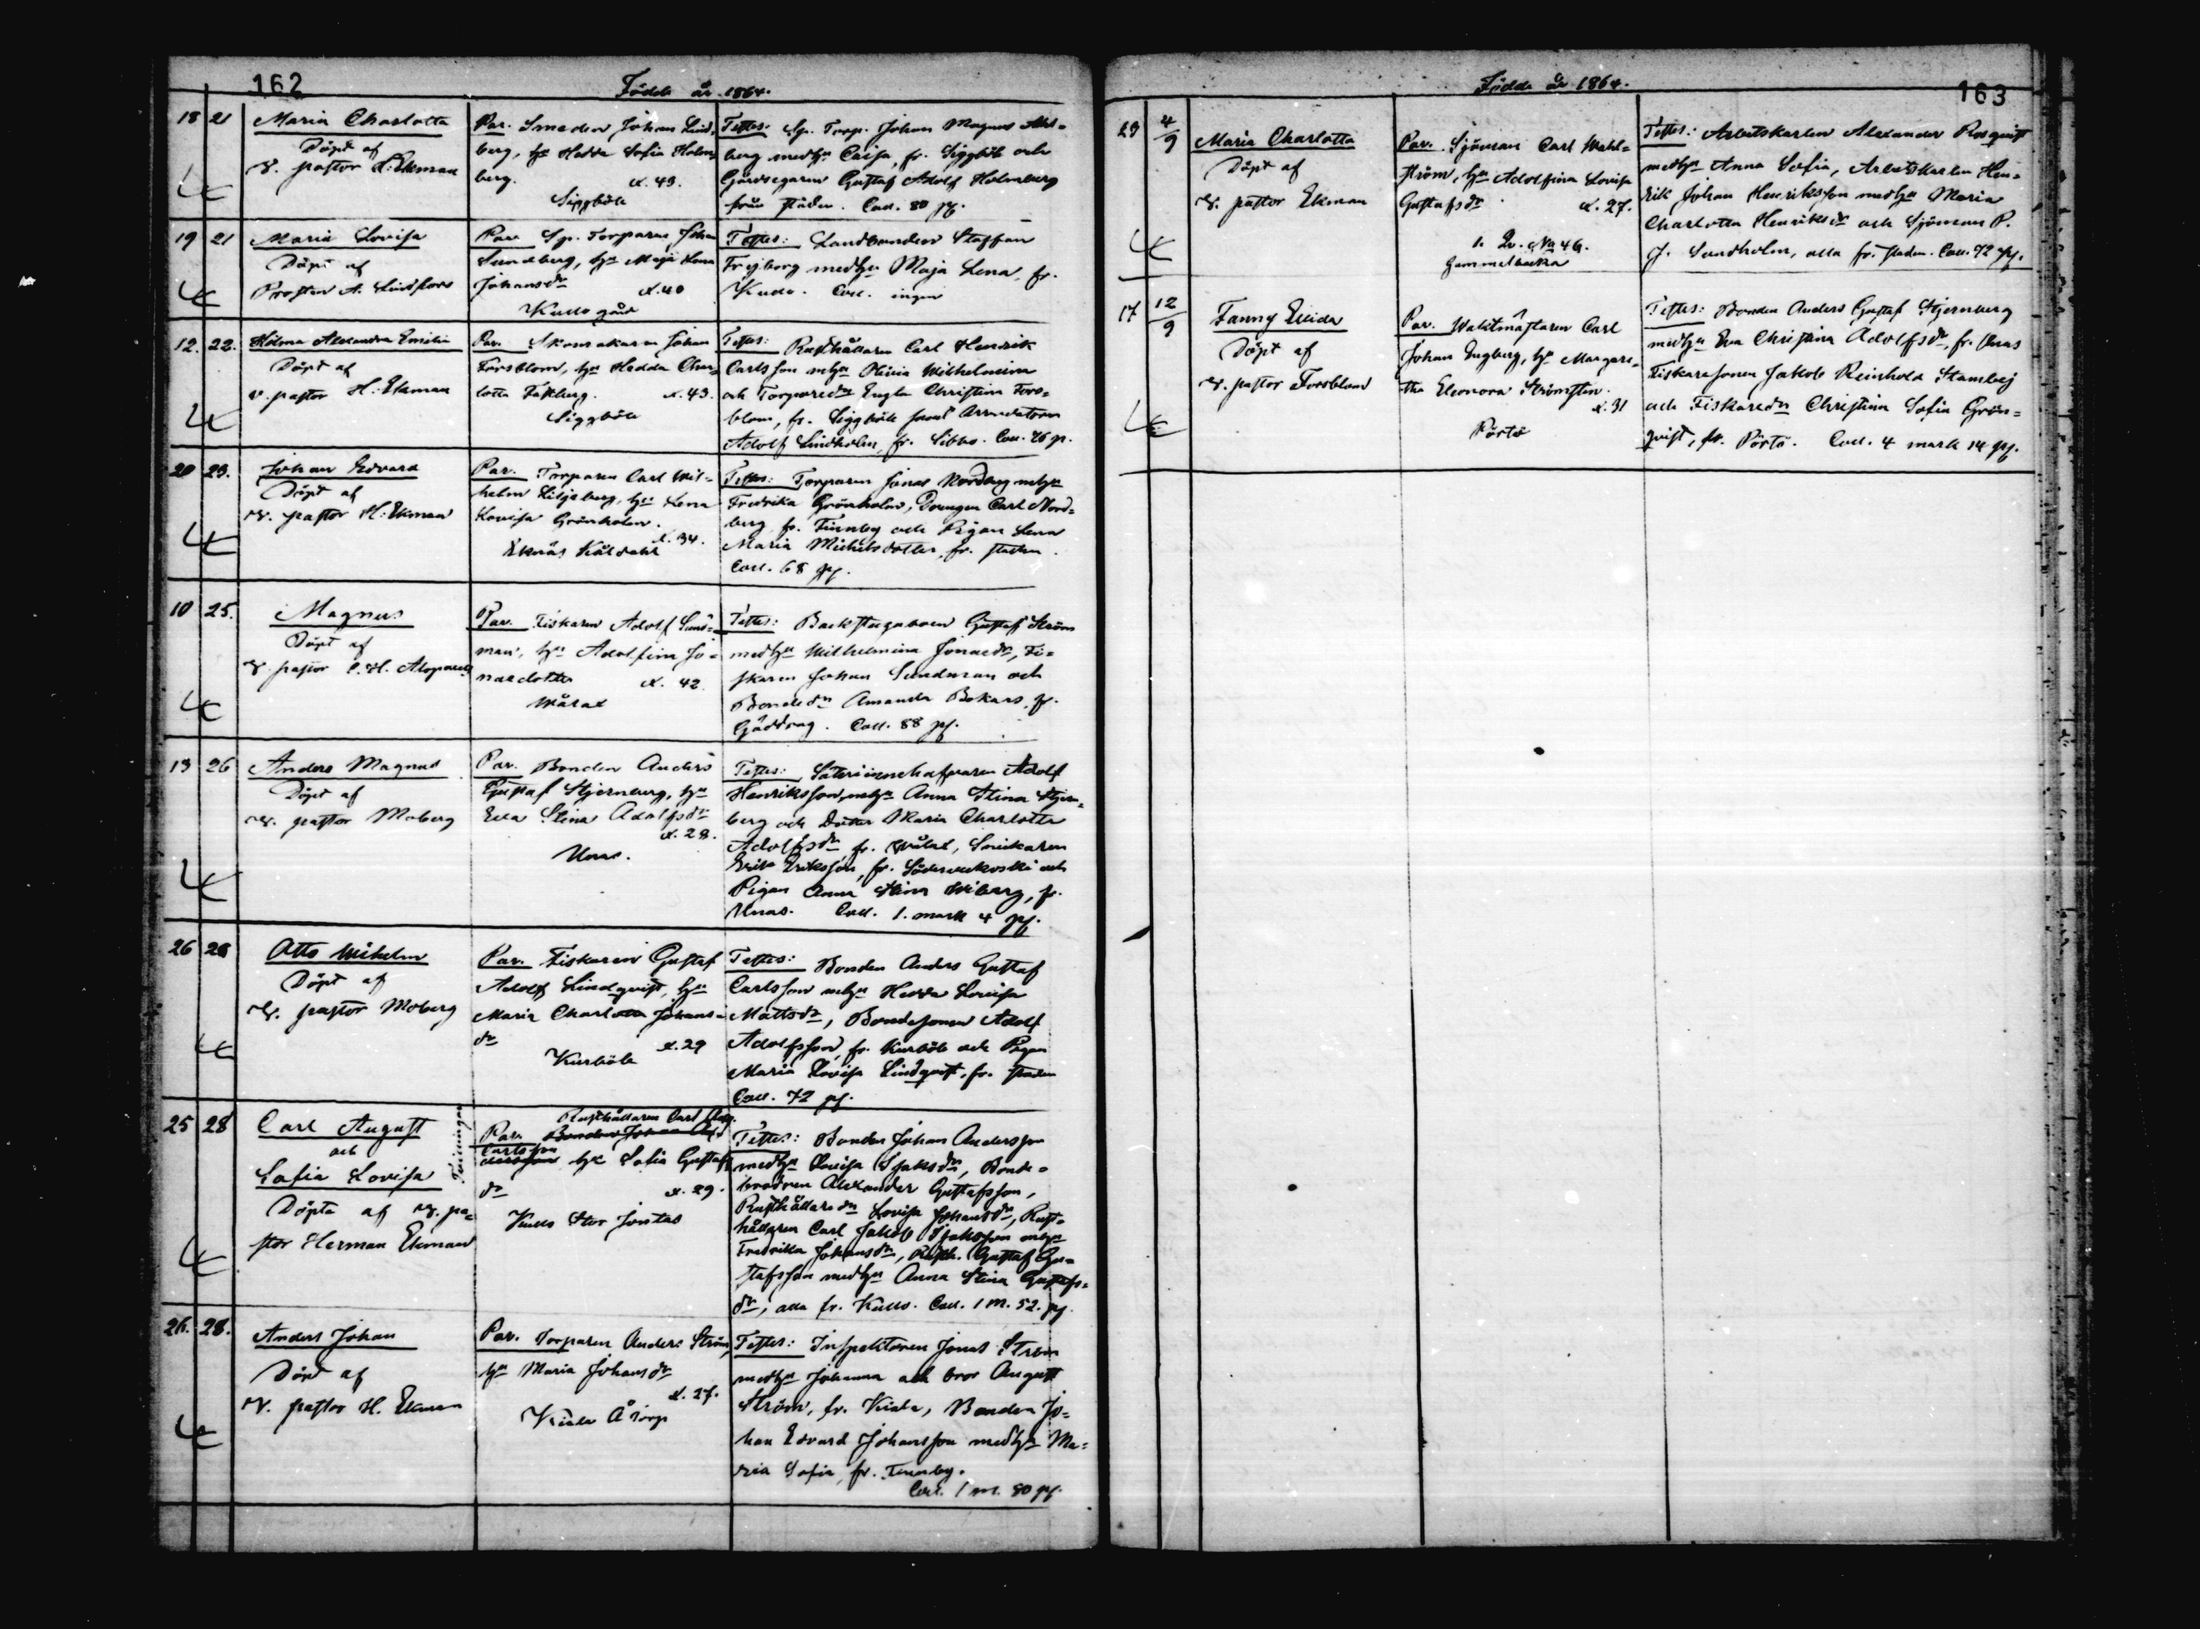 162
Födde år 1864.
18 21
Maria Charlotta
Döpt af
v. pastor H. Ekman
Par. Smeden Johan Lind-
berg, hu Hedda Sofia Holm-
berg. æ. 43.
Siggböle
Testes: Sp. Torp. Johan Magnus Ahl-
berg medhu Caisa, fr. Siggböle och
Gårdsegaren Gustaf Adolf Holmberg
från staden. Coll. 80 pf.
19 21
Maria Lovisa
Döpt af
Prosten A. Lindfors
Par. Sp. Torparen Johan
Sundberg, hu Maja Lena
Johansdr æ. 40
Kullo gård
Testes: Landbonden Staffan
Fryborg medhu Maja Lena, fr.
Kullo. Coll. ingen
12. 22.
Hilma Alexandra Emilia
Döpt af
v. pastor H. Ekman
Par. Skomakaren Johan
Forsblom, hu Hedda Char-
lotta æ. 43.
Siggböle
Testes: Rusthållaren Carl Hendrik
Carlsson mhu Olivia Wilhelmina
och Torparedr Engla Christina Fors-
blom, fr. Siggböle samt Arrendatorn
Adolf Lindholm, fr. Sibbo. Coll. 76 p.
20 23.
Johan Edvard
Döpt af
v. pastor H. Ekman
Par. Torparen Carl Wil-
helm Liljeberg, hu Lena
Lovisa Grönholm.
æ. 34.
Eknäs Kåldahl
Testes: Torparen Jonas Nordberg mhu
Fredrika Grönholm, Drengen Carl Nord-
berg fr. Finnby och Pigan Lena
Maria Michelsdotter, fr. staden.
Coll. 68 pf.
10 25.
Magnus
Döpt af
v. pastor C. H. Alopaeus
Par. Fiskaren Adolf Sund-
man, hu Adolfina Jo-
nasdotter æ. 42.
Wålax
Testes: Backstugaboen Gustaf Ström
medhu Wilhelmina Jonaedr, Fi-
skaren Johan Sundman och
Bondedr Amanda Bokars, fr.
Gäddrag. Coll. 88 pf.
13 26
Anders Magnus
Döpt af
v. pastor Moberg
Par. Bonden Anders
Gustaf Stjernberg, hu
Eva Stina Adolfsdr
æ. 28.
Unas.
Testes: Säteriinnehafvaren Adolf
Henriksson, mhu Anna Stina Stjern-
berg och Dotter Maria Charlotta
Adolfsdr fr. Wålax, Snickaren
Erik Eriksson, fr. Söderveckoski och
Pigan Anna Stina Wiberg, fr.
Unas. Coll. 1. mark 4 pf.
26 28
Otto Wilhelm
Döpt af
v. pastor Moberg
Par. Fiskaren Gustaf
Adolf Lindqvist, hu
Maria Charlotta Johans-
dr æ. 29
Kurböle
Testes: Bonden Anders Gustaf
Carlsson mhu Hedda Lovisa
Mattsdr, Bondesonen Adolf
Adolfsson, fr. Kurböle och Pigan
Maria Lovisa Lindqvist, fr. staden
Coll. 72 pf.
25 28
Carl August
och
Sofia Lovisa
Tvillingar
Döpte af v. pa-
stor Herman Ekman
Rusthållaren Carl Aug.
Par. Bonden Johan An-
Carlsson
dersson hu Sofia Gustafs
dr æ. 29.
Kullo Stor Jontas
Testes: Bonden Johan Andersson
medhu Lovisa Isaksdr, Bonde-
brodren Alexander Gustafsson,
Rusthållaredr Lovisa Johansdr, Rust-
hållaren Carl Jakob Isaksson mhu
Fredrika Johansdr, Rusth. Gustaf Gu-
stafsson medhu Anna Stina Gustafs-
dr, alla fr. Kullo. Coll. 1 M. 52. pf.
26. 28.
Anders Johan
Döpt af
v. pastor H. Ekman
Par. Torparen Anders Ström,
hu Maria Johansdr
æ. 27.
Kiala Åtorp
Testes: Inspektoren Jonas Ström
medhu Johanna och bror August
Ström, fr. Kiala, Bonden Jo-
han Edvard Johansson medhu Ma-
ria Sofia, fr. Finnby.
Coll. 1 m. 80 pf.
Födde år 1864.
163
23 4/9
Maria Charlotta
Döpt af
v. pastor Ekman
Par. Sjöman Carl Wahl-
ström, hu Adolfina Lovisa
Gustafsdr æ. 27.
1. Qv. No 46.
Gammelbacka
Testes: Arbetskarlen Alexander Rosqvist
medhu Anna Sofia, Arbetskarlen Hen-
rik Johan Henriksson medhu Maria
Charlotta Henriksdr och Sjöman P.
J. Sundholm, alla fr. staden. Coll. 72 pf.
17 12/9
Fanny Elida
Döpt af
v. pastor Forsblom
Par. Waktmästaren Carl
Johan Engberg, hu Margare-
tha Eleonora Strömsten.
æ. 31
Pörtö
Testes: Bonden Anders Gustaf Stjernberg
medhu Eva Christina Adolfsdr, fr. Unas
Fiskaresonen Jakob Reinhold Stambej
och Fiskaredr Christina Sofia Grön-
qvist, fr. Pörtö. Coll. 4 mark 14 pf.